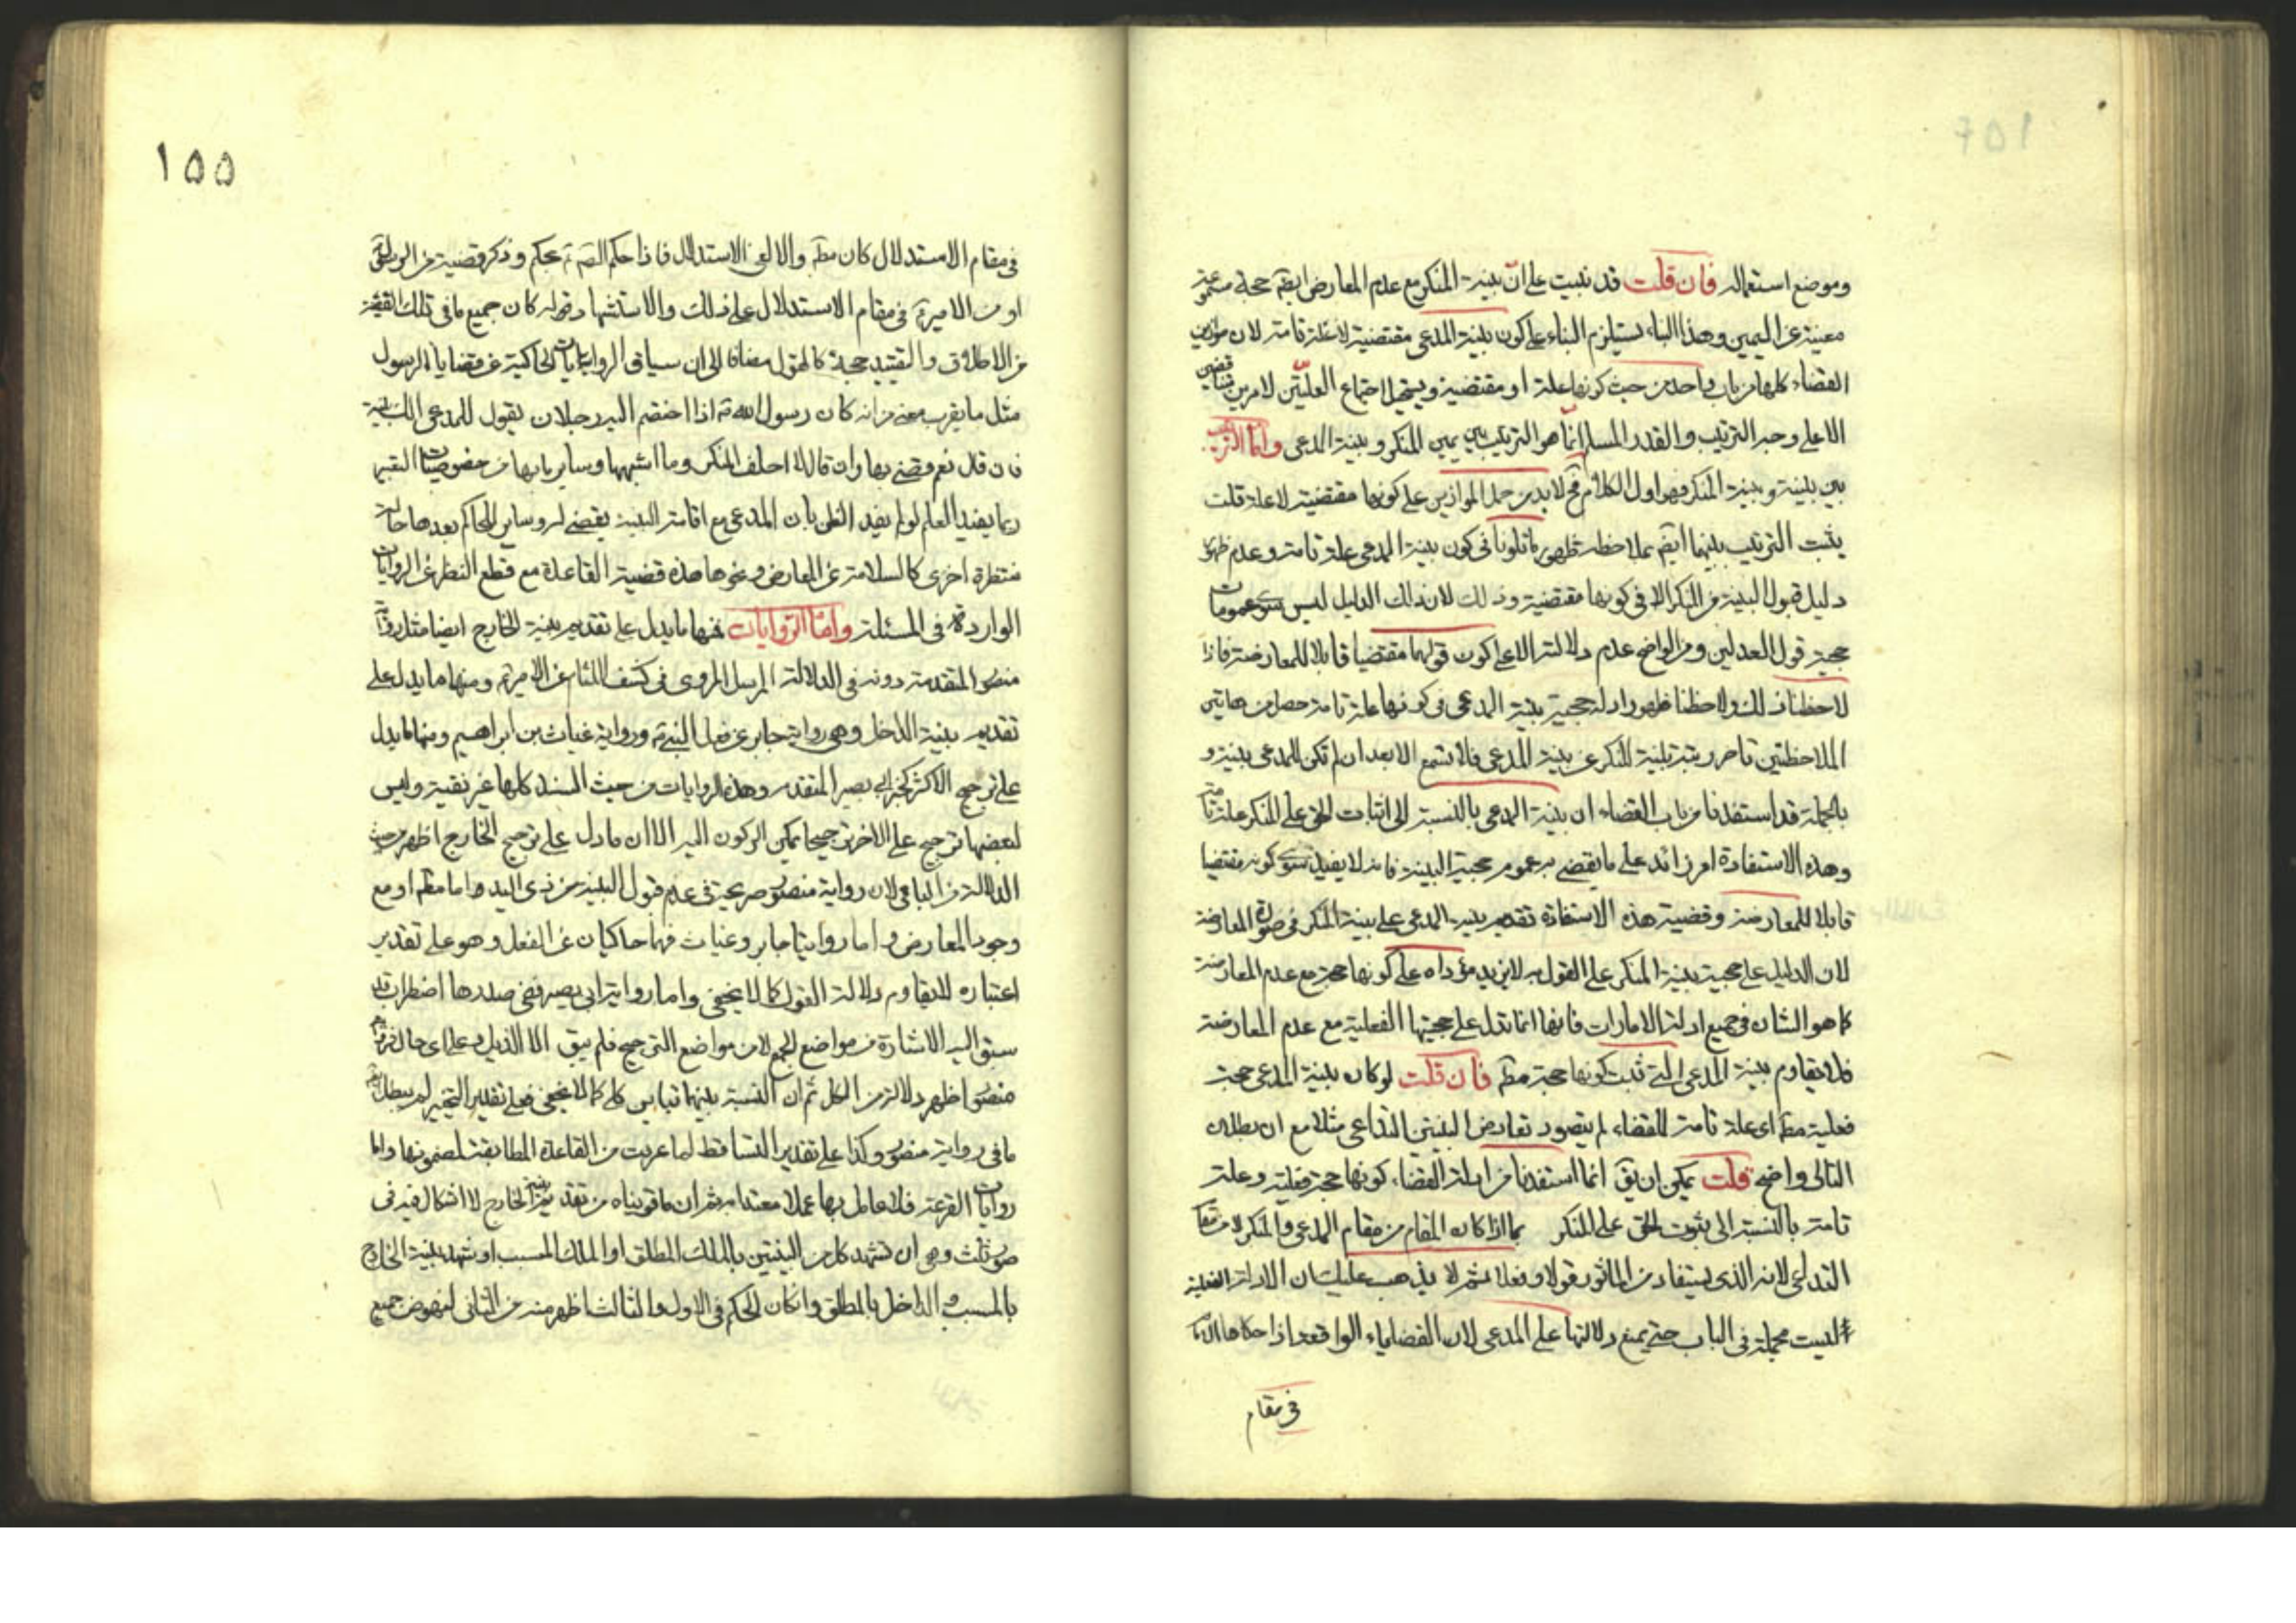 وموضع استعماله فان قلت قد تبيت على انّ بينة المنكر مع عدم المعارض ايضا حجة
مغنية عن اليمين وهذا البناء يستلزم البناء على كون بينة المدعى مقتضية لا علة تامة لان موازين
القضاء كلها من باب واحد من حيث كونها علة او مقتضية ويستحيل اجتماع العلتين لامرين
الا على وجه الترتيب والقدر المسلم انما هو الترتيب بين يمين المنكر وبينة المدعى واما الترتيب
بين بينة وبينة المنكر فهو اول الكلام فح لابد من حمل الموازين على كونها مقتضية لا علة قلت
يثبت الترتيب بينهما ايضا بملاحظة ظهور ما تلونا فى كون بينة المدعى علة تامة وعدم ظهور
دليل قبول البينة من المنكر الا فى كونها مقتضية وذلك لان ذلك الدليل ليس سوى عمومات
حجية قول العدلين ومن الواضح عدم دلالته الا على كون قولهما مقتضيا قابلا للمعارضة فاذا
لاحظنا ذلك ولاحظنا ظهور ادلة حجية بينة المدعى فى كونها علة تامة حصل من هاتين
الملاحظتين تاخر رتبة بينة المنكر عن بينة المدعى فلا تسمع الا بعد ان لم تكن للمدعى بينة و
بالجملة قد استفدنا من باب القضاء ان بينة المدعى بالنسبة الى اثبات الحق على المنكر علة تامة
وهذه الاستفادة امر زائد على ما يقضى به عموم حجية البينة فانه لا يفيد سوى كونه مقتضيا
قابلا للمعارضة وقضية هذه الاستفادة تقديم بينة المدعى على بينة المنكر فى صورة المعارضة
لان الدليل على حجية بينة المنكر على القول به لا يزيد مؤداه على كونها حجة مع عدم المعارضة
كما هو الشان فى جميع ادلة الامارات فانها انما تدل على حجيتها الفعلية مع عدم المعارضة
فلا يقاوم بينة المدعى التى ثبت كونها حجة مطم فان قلت لو كان بينة المدعى حجة
فعلية مطم اى علة تامة للقضاء لم يتصور تعارض البينتين التداعى مثلا مع ان بطلان
التالى واضح قلت يمكن ان يق انما استفدنا من ادلة القضاء كونها حجة فعلية وعلة
تامة بالنسبة الى ثبوت الحق على المنكر بما اذا كان المقام من مقام المدعى والمنكر لا من مقام
التداعى لانه الذى يستفاد من الماثور قولا وفعلا ثم لا يذهب عليك ان الادلة الفعلية
ليست مجملة فى الباب حتى يمنع دلالتها على المدعى لان القضاياء الواقعة اذا حكاها الامام
فى مقام
١٥٥
فى مقام الاستدلال كان مطم والا لغى الاستدلال فاذا حكم الص ع بحكم وذكر قضية من الرسول ص
او من الامير ع فى مقام الاستدلال على ذلك والاستشهاد قوله كان جميع ما فى تلك القضية
من الاطلاق والتقييد حجة كالقول مضافا الى ان سياق الروايات الحاكية عن قضايا الرسول
مثل ما يقرب معنى من انه كان رسول الله ص اذا اختصم اليه رجلان يقول للمدعى الك بينة
فان قال نعم وقضى بها وان قال لا احلف المنكر وما اشبهها وساير ما بها من خصوصيات التعبير
ربما يفيد العلم لو لم يفد الظن بان المدعى مع اقامة البينة يقضى له وساير المحاكم بعدها حالة
منتظرة اخرى كالسلامة عن المعارض ونحوها هذه قضية القاعدة مع قطع النظر عن الروايات
الواردة فى المسئلة وامّا الرّوايات فمنها ما يدل على تقديم بينة الخارج ايضا مثل رواية
منصور المتقدمة دونه فى الدلالة المرسل المروى فى كشف اللثام عن الامير ع ومنها ما يدل على
تقديم بينة الداخل وهى رواية جابر عن فعل النبى ص ورواية غياث بن ابراهيم ومنها ما يدل
على ترجيح الاكثر كخبر ابى بصير المتقدم وهذه الروايات من حيث السند كلها غير نقية وليس
لبعضها ترجيح على الاخر ترجيحا يمكن الركون اليه الا ان ما دل على ترجيح الخارج اظهر من حيث
الدلالة من الباقى لان رواية منصور صريحة فى عدم قبول البينة من ذى اليد واما مطم او مع
وجود المعارض واما روايتا جابر وغياث فهما حاكيان عن الفعل وهو على تقدير
اعتباره لا يقاوم دلالة القول كما لا يخفى واما رواية ابى بصير ففى صدرها اضطراب قد
سبق اليه الاشارة من مواضع الجمع لا من مواضع الترجيح فلم يبق الا الذيل وعلى اى حال فرواية
منصور اظهر دلالة من الكل ثم ان النسبة بينهما تباين كلى كما لا يخفى فعلى تقدير التخيير لم يبطل
ما فى رواية منصور وكذا على تقدير التساقط لما عرفت من القاعدة المطابقة لمضمونها واما
روايات القرعة فلا عامل بها عملا معتدا به ثم ان ما قويناه من تقديم بينة الخارج لا اشكال فيه فى
صور ثلث وهى ان تشهد كل من البينتين بالملك المطلق او الملك المسبب او تشهد بينة الخارج
بالمسبب و الداخل بالمطلق وان كان الحكم فى الاول والثالث اظهر منه من الثانى لنهوض جميع